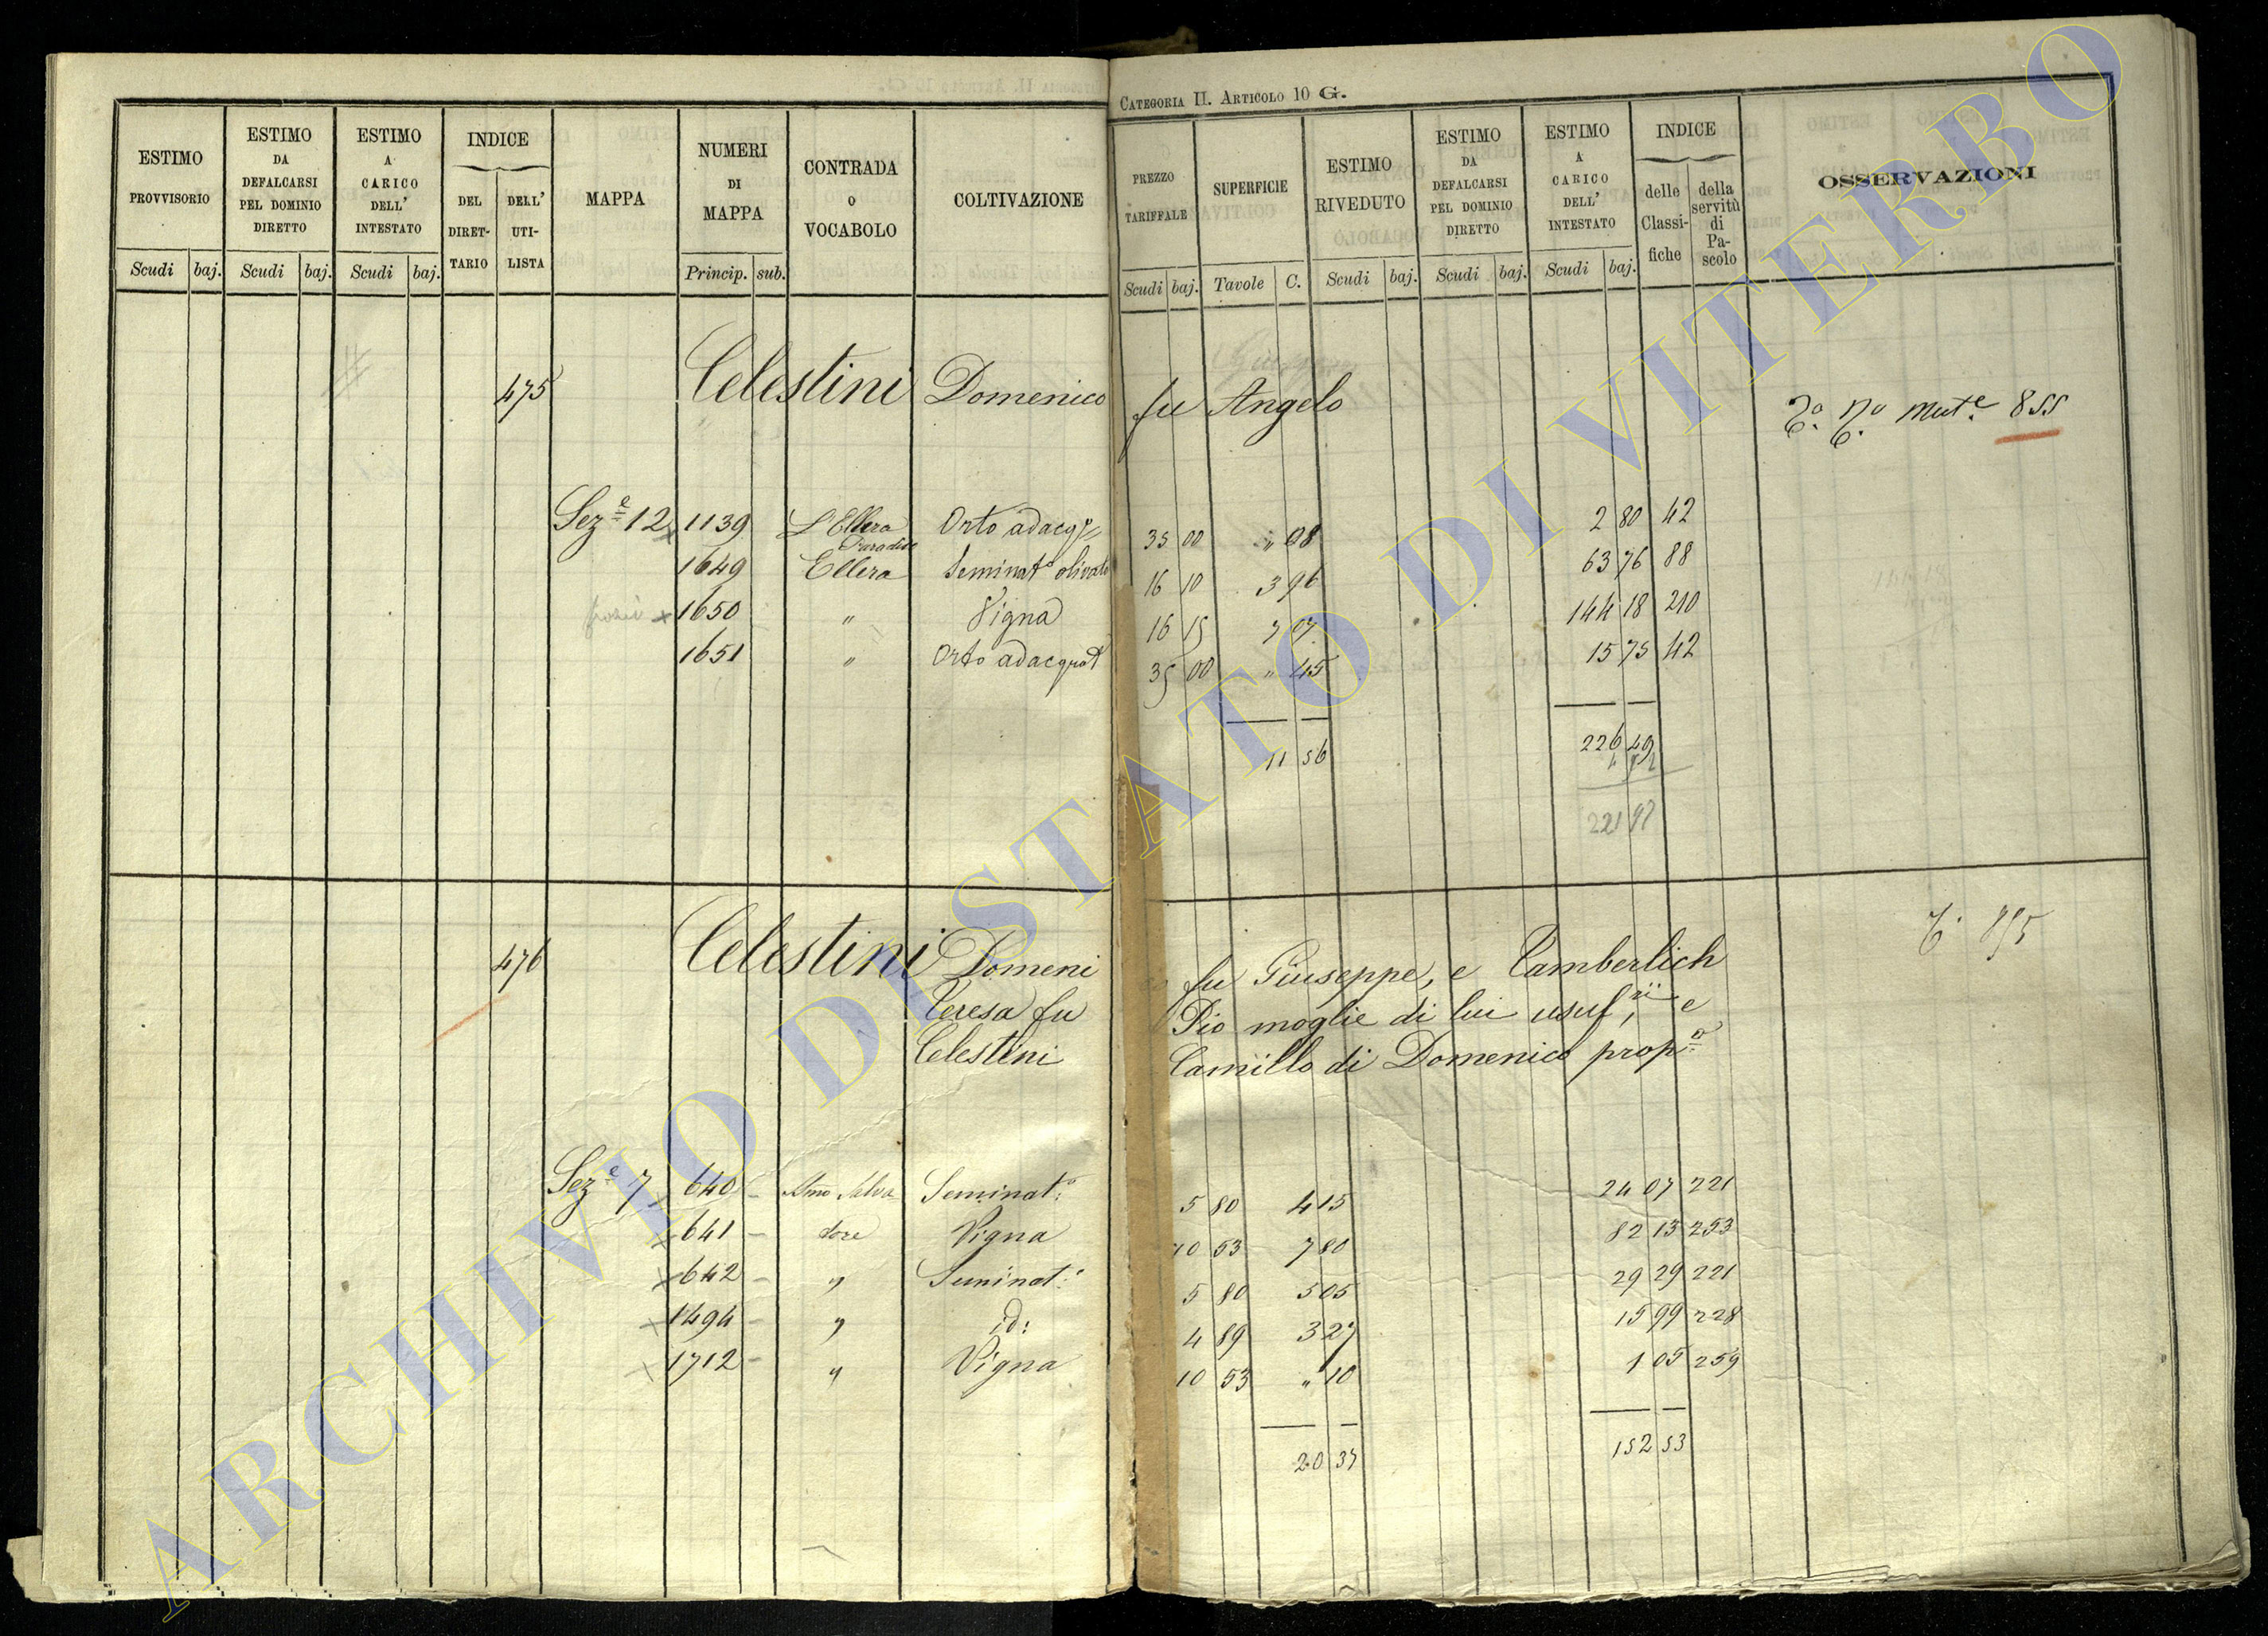 CATEGORIA II. ARTICOLO 10 G.
ESTIMO PROVVISORIO
ESTIMO DA DEFALCARSI PEL DOMINIO DIRETTO
ESTIMO A CARICO DELL' INTESTATO
INDICE
DEL DIRETTARIO
DELL' UTILISTA
MAPPA
NUMERI DI MAPPA
CONTRADA O VOCABOLO
COLTIVAZIONE
PREZZO TARIFFALE
SUPERFICIE
ESTIMO RIVEDUTO
ESTIMO DA DEFALCARSI PEL DOMINIO DIRETTO
ESTIMO A CARICO DELL' INTESTATO
INDICE
delle Classifiche
della servitù di Pascolo
OSSERVAZIONI
Scudi baj. Scudi baj. Scudi baj. Princip. sub. Scudi baj. Tavole C. Scudi baj. Scudi baj. Scudi baj.
475 Celestini Domenico fu Angelo
Mut.e 855
Sez.e 12 1139 L'Ellera Paradiso Orto adacq. 35 00 " 08 2 80 42
1649 Ellera Seminat.o olivato 16 10 3 96 63 76 88
1650 " Vigna 16 15 7 07 144 18 210
1651 " Orto adacquat 35 00 " 45 15 75 42
11 56 226 49
221 97
476 Celestini Domenico fu Giuseppe, e Tamberlich
Teresa fu Pio moglie di lui usuf.rii, e
Celestini Camillo di Domenico prop.o
855
Sez.e 7 640 Smo Salva Seminat.o 5 80 4 15 24 07 221
641 dore Vigna 10 53 7 80 82 13 253
642 " Seminat.o 5 80 5 05 29 29 221
1494 " id: 4 89 3 27 15 99 228
1712 " Vigna 10 53 " 10 1 05 259
20 37 152 53
ARCHIVIO DI STATO DI VITERBO